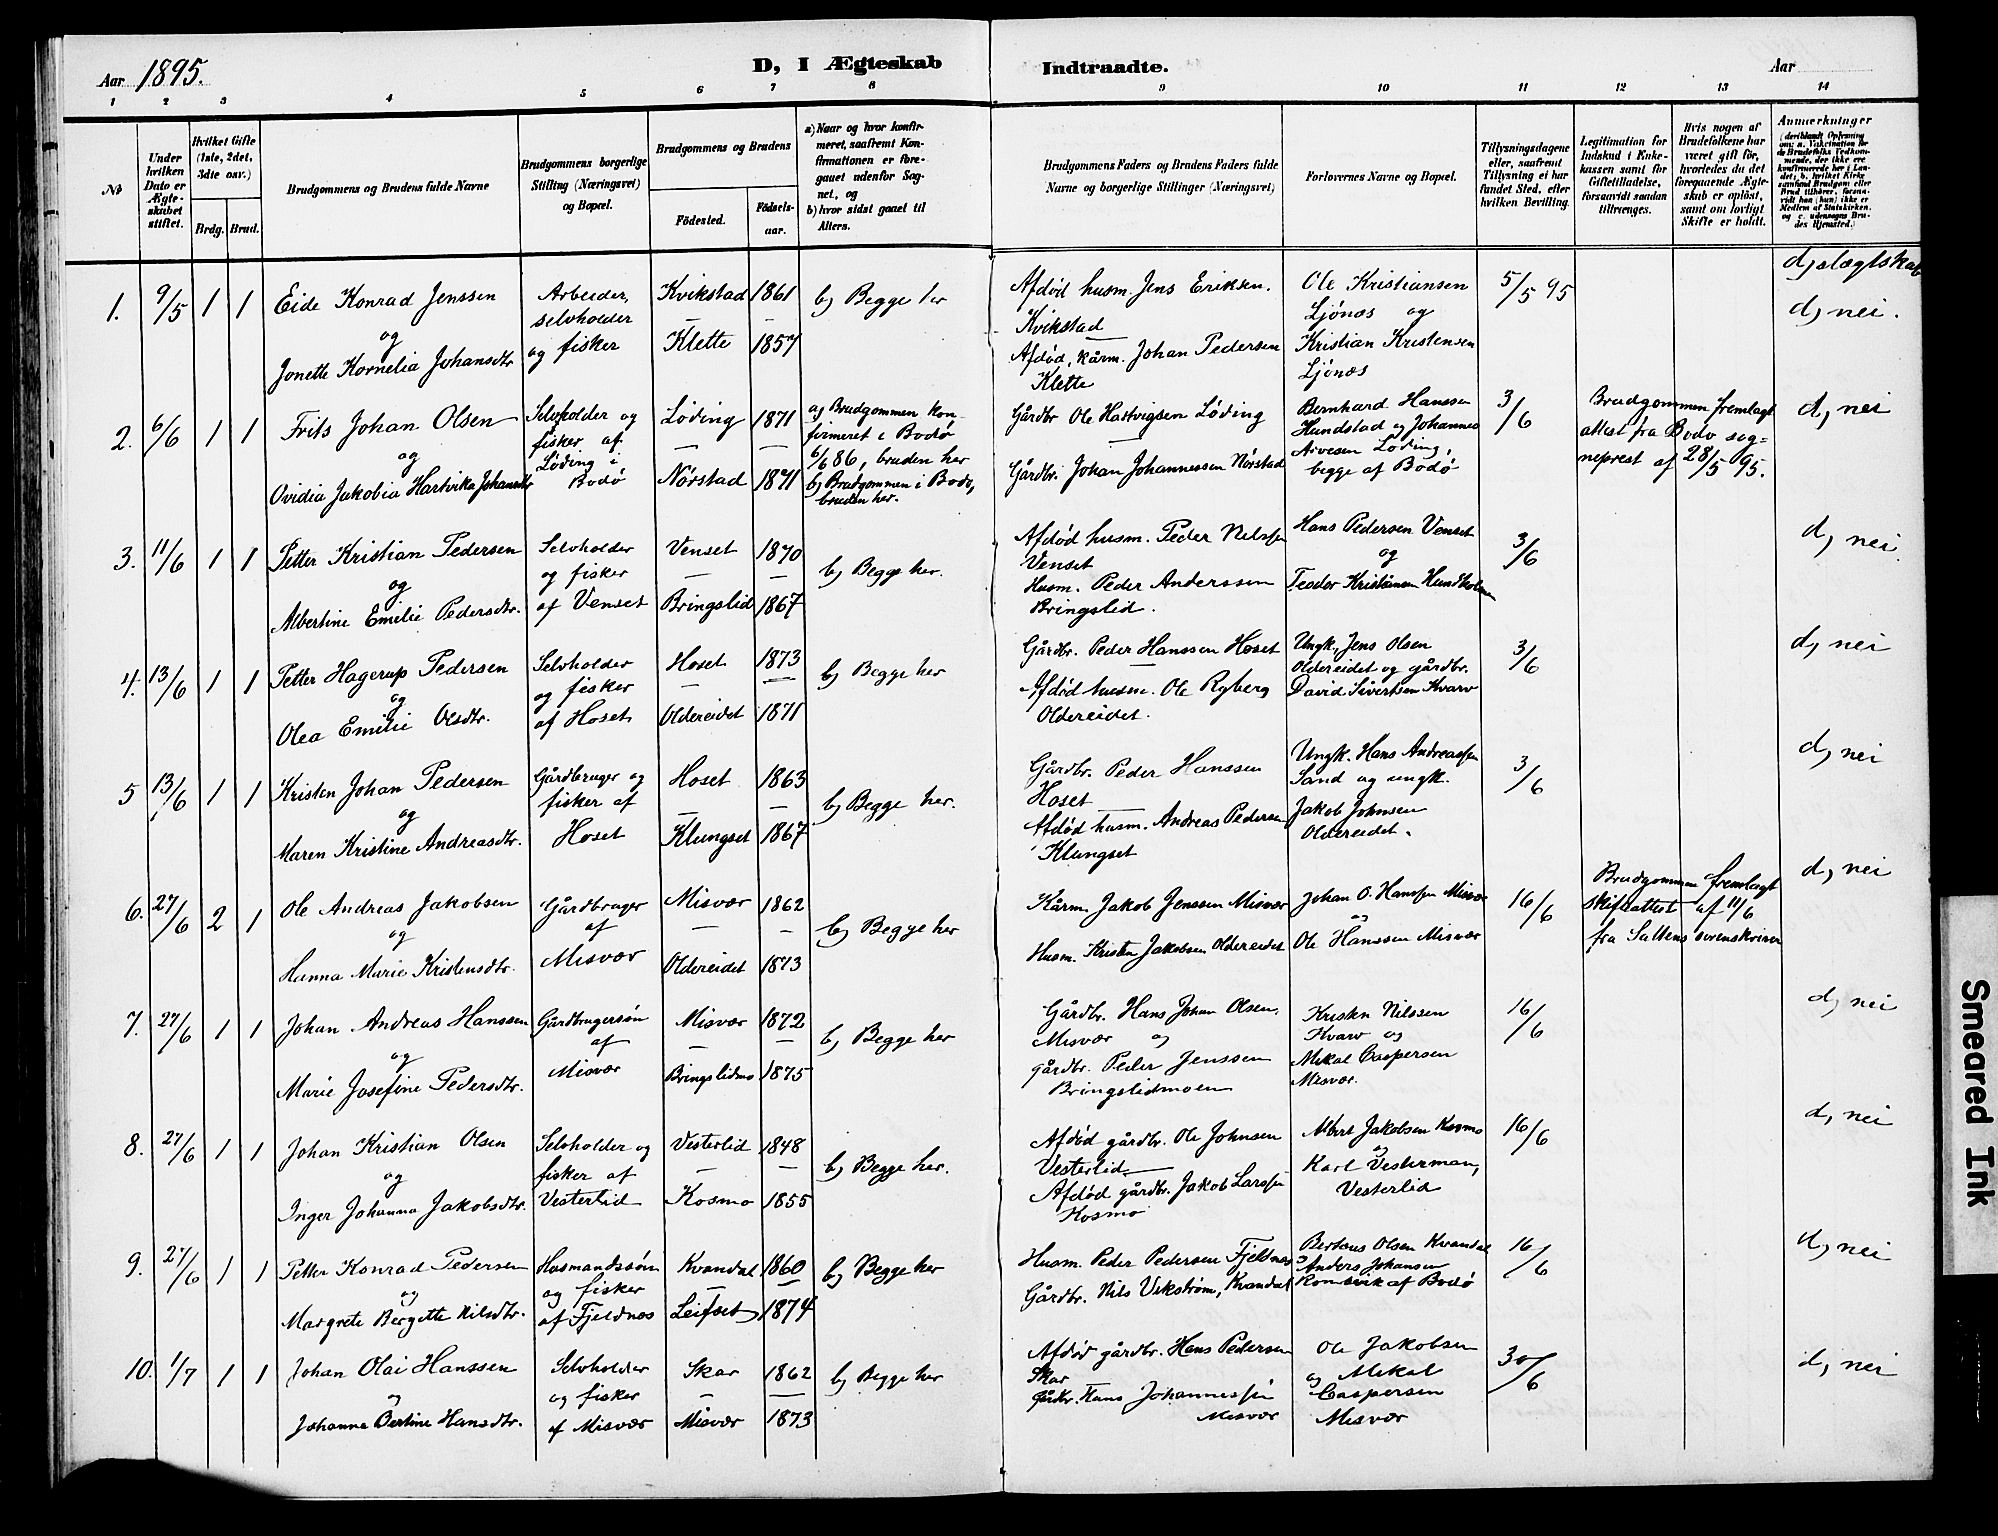 Aar 1895.
D, I Ægteskab
Indtraadte.
Aar
1 2 3 4 5 6 7 8 9 10 11 12 13 14
№
Under hvilken Dato er Ægteskabet stiftet.
Hvilket Gifte (1ste, 2det, 3die osv.)
Brdg. Brud.
Brudgommens og Brudens fulde Navne
Brudgommens borgerlige Stilling (Næringsvei) og Bopæl.
Brudgommens og Brudens
Fødested.
Fødselsaar.
a) Naar og hvor konfirmeret, saafremt Konfirmationen er foregaaet udenfor Sognet, og
b) hvor sidst gaaet til Alters.
Brudgommens Faders og Brudens Faders fulde Navne og borgerlige Stillinger (Næringsvei)
Forlovernes Navne og Bopæl.
Tillysningsdagene eller, saafremt Tillysning ei har fundet Sted, efter hvilken Bevilling.
Legitimation for Indskud i Enkekassen samt for Giftetilladelse, forsaavidt saadan tiltrænges.
Hvis nogen af Brudefolkene har været gift før, hvorledes da det foregaaende Ægteskab er opløst, samt om lovligt Skifte er holdt.
Anmærkninger (deriblandt Oplysning om: a. Vaccination for de Brudefolks Vedkommende, der ikke ere konfirmerede her i Landet; b. hvilket Kirkesamfund Brudgom eller Brud tilhører, forsaavidt han (hun) ikke er Medlem af Statskirken, og c. udensogns Brudes Hjemsted.)
d, slægtskab
1. 9/5 1 1 Eide Konrad Jenssen
og
Jonette Kornelia Johansdtr
Arbeider,
selvholder
og fisker
Kvikstad 1861
Klette 1857
b) Begge her
Afdød husm. Jens Eriksen.
Kvikstad
Afdød, kårm. Johan Pedersen
Klette
Ole Kristiansen
Ljönes og
Kristian Kristensen
Ljönes
5/5 95
d, nei.
2. 6/6 1 1 Frits Johan Olsen
og
Ovidia Jakobia Hartvika Johansdtr
Selvholder og
fisker af
Løding i
Bodø
Løding 1871
Nørstad 1871
a) Brudgommen kon-
firmeret i Bodø
6/6 86, bruden her
b) Brudgommen i Bodø,
bruden her.
Gårdbr Ole Hartvigsen Löding
Gårdbr. Johan Johannessen Nørstad
Bernhard Hanssen
Hundstad og Johannes
Arvesen Løding,
begge af Bodø
3/6
Brudgommen fremlagt
attest fra Bodø sog-
neprest af 28/5 95.
d, nei
3. 11/6 1 1 Petter Kristian Pedersen
og
Albertine Emilie Pedersdtr.
Selvholder
og fisker
af Venset
Venset 1870
Bringslid 1867
b) Begge her.
Afdød husm. Peder Nilssen
Venset
Husm. Peder Anderssen
Bringslid.
Hans Pedersen Venset
og
Teodor Kristiansen Hundholmen
3/6
d, nei
4. 13/6 1 1 Petter Hagerup Pedersen
og
Olea Emilie Olsdtr.
Selvholder
og fisker
af Hoset
Hoset 1873
Oldereidet 1871
b) Begge her
Gårdbr. Peder Hanssen Hoset
Afdød husm. Ole Ryberg
Oldereidet.
Ungk. Jens Olsen
Oldereidet og gårdbr.
David Sivertsen Kvarv
3/6
d, nei
5 13/6 1 1 Kristen Johan Pedersen
og
Maren Kristine Andreasdtr.
Gårdbruger og
fisker af
Hoset
Hoset 1863
Klungset 1867
b) Begge her.
Gårdbr. Peder Hanssen
Hoset
Afdød husm. Andreas Pedersen
Klungset
Ungk. Hans Andreassen
Sand og ungk.
Jakob Johnsen
Oldereidet.
3/6
d, nei
6. 27/6 2 1 Ole Andreas Jakobsen
og
Hanna Marie Kristensdtr.
Gårdbruger
af
Misvær
Misvær 1862
Oldereidet 1873
b) Begge her
Kårm. Jakob Jenssen Misvær
Husm. Kristen Jakobsen Oldereidet
Johan O. Hanssen Misvær
og
Ole Hanssen Misvær
16/6
Brudgommen fremlagt
skifteattest af 11/6
fra Saltens sorenskriver
d, nei
7. 27/6 1 1 Johan Andreas Hanssen
og
Marie Josefine Pedersdtr.
Gårdbrugersön
af
Misvær
Misvær 1872
Bringslidmo 1875
b) Begge her
Gårdbr. Hans Johan Olsen,
Misvær og
gårdbr. Peder Jenssen
Bringslidmoen
Kristen Nilssen
Kvarv og
Mikal Caspersen
Misvær.
16/6
d, nei
8. 27/6 1 1 Johan Kristian Olsen
og
Inger Johanna Jakobsdtr.
Selvholder og
fisker af
Vesterlid
Vesterlid 1848
Kosmo 1855
b) Begge her.
Afdød gårdbr. Ole Johnsen
Vesterlid
Afdød gårdbr. Jakob Larssen
Kosmo
Albert Jakobsen Kosmo
og
Karl Vesterman,
Vesterlid
16/6
d, nei
9. 27/6 1 1 Petter Konrad Pedersen
og
Margrete Bergitte Nilsdtr.
Husmandssön
og fisker
af Fjeldnes
Kvandal 1860
Leifset 1874
b) Begge her
Husm. Peder Pedersen Fjeldnes
Gårdbr. Nils Vikström, Kvandal
Berteus Olsen Kvandal
Anders Johansen
af Bodö
16/6
d, nei
10. 1/7 1 1 Johan Olai Hanssen
og
Johanna Bertine Hansdtr.
Selvholder
og fisker
af Misvær
Skar 1862
Misvær 1873
b) Begge her
Afdød gårdbr. Hans Pedersen
Skar
gårdbr. Hans Johannessen
Misvær
Ole Jakobsen
og Mikal
Caspersen
Misvær
30/6
d, nei
Smeared Ink